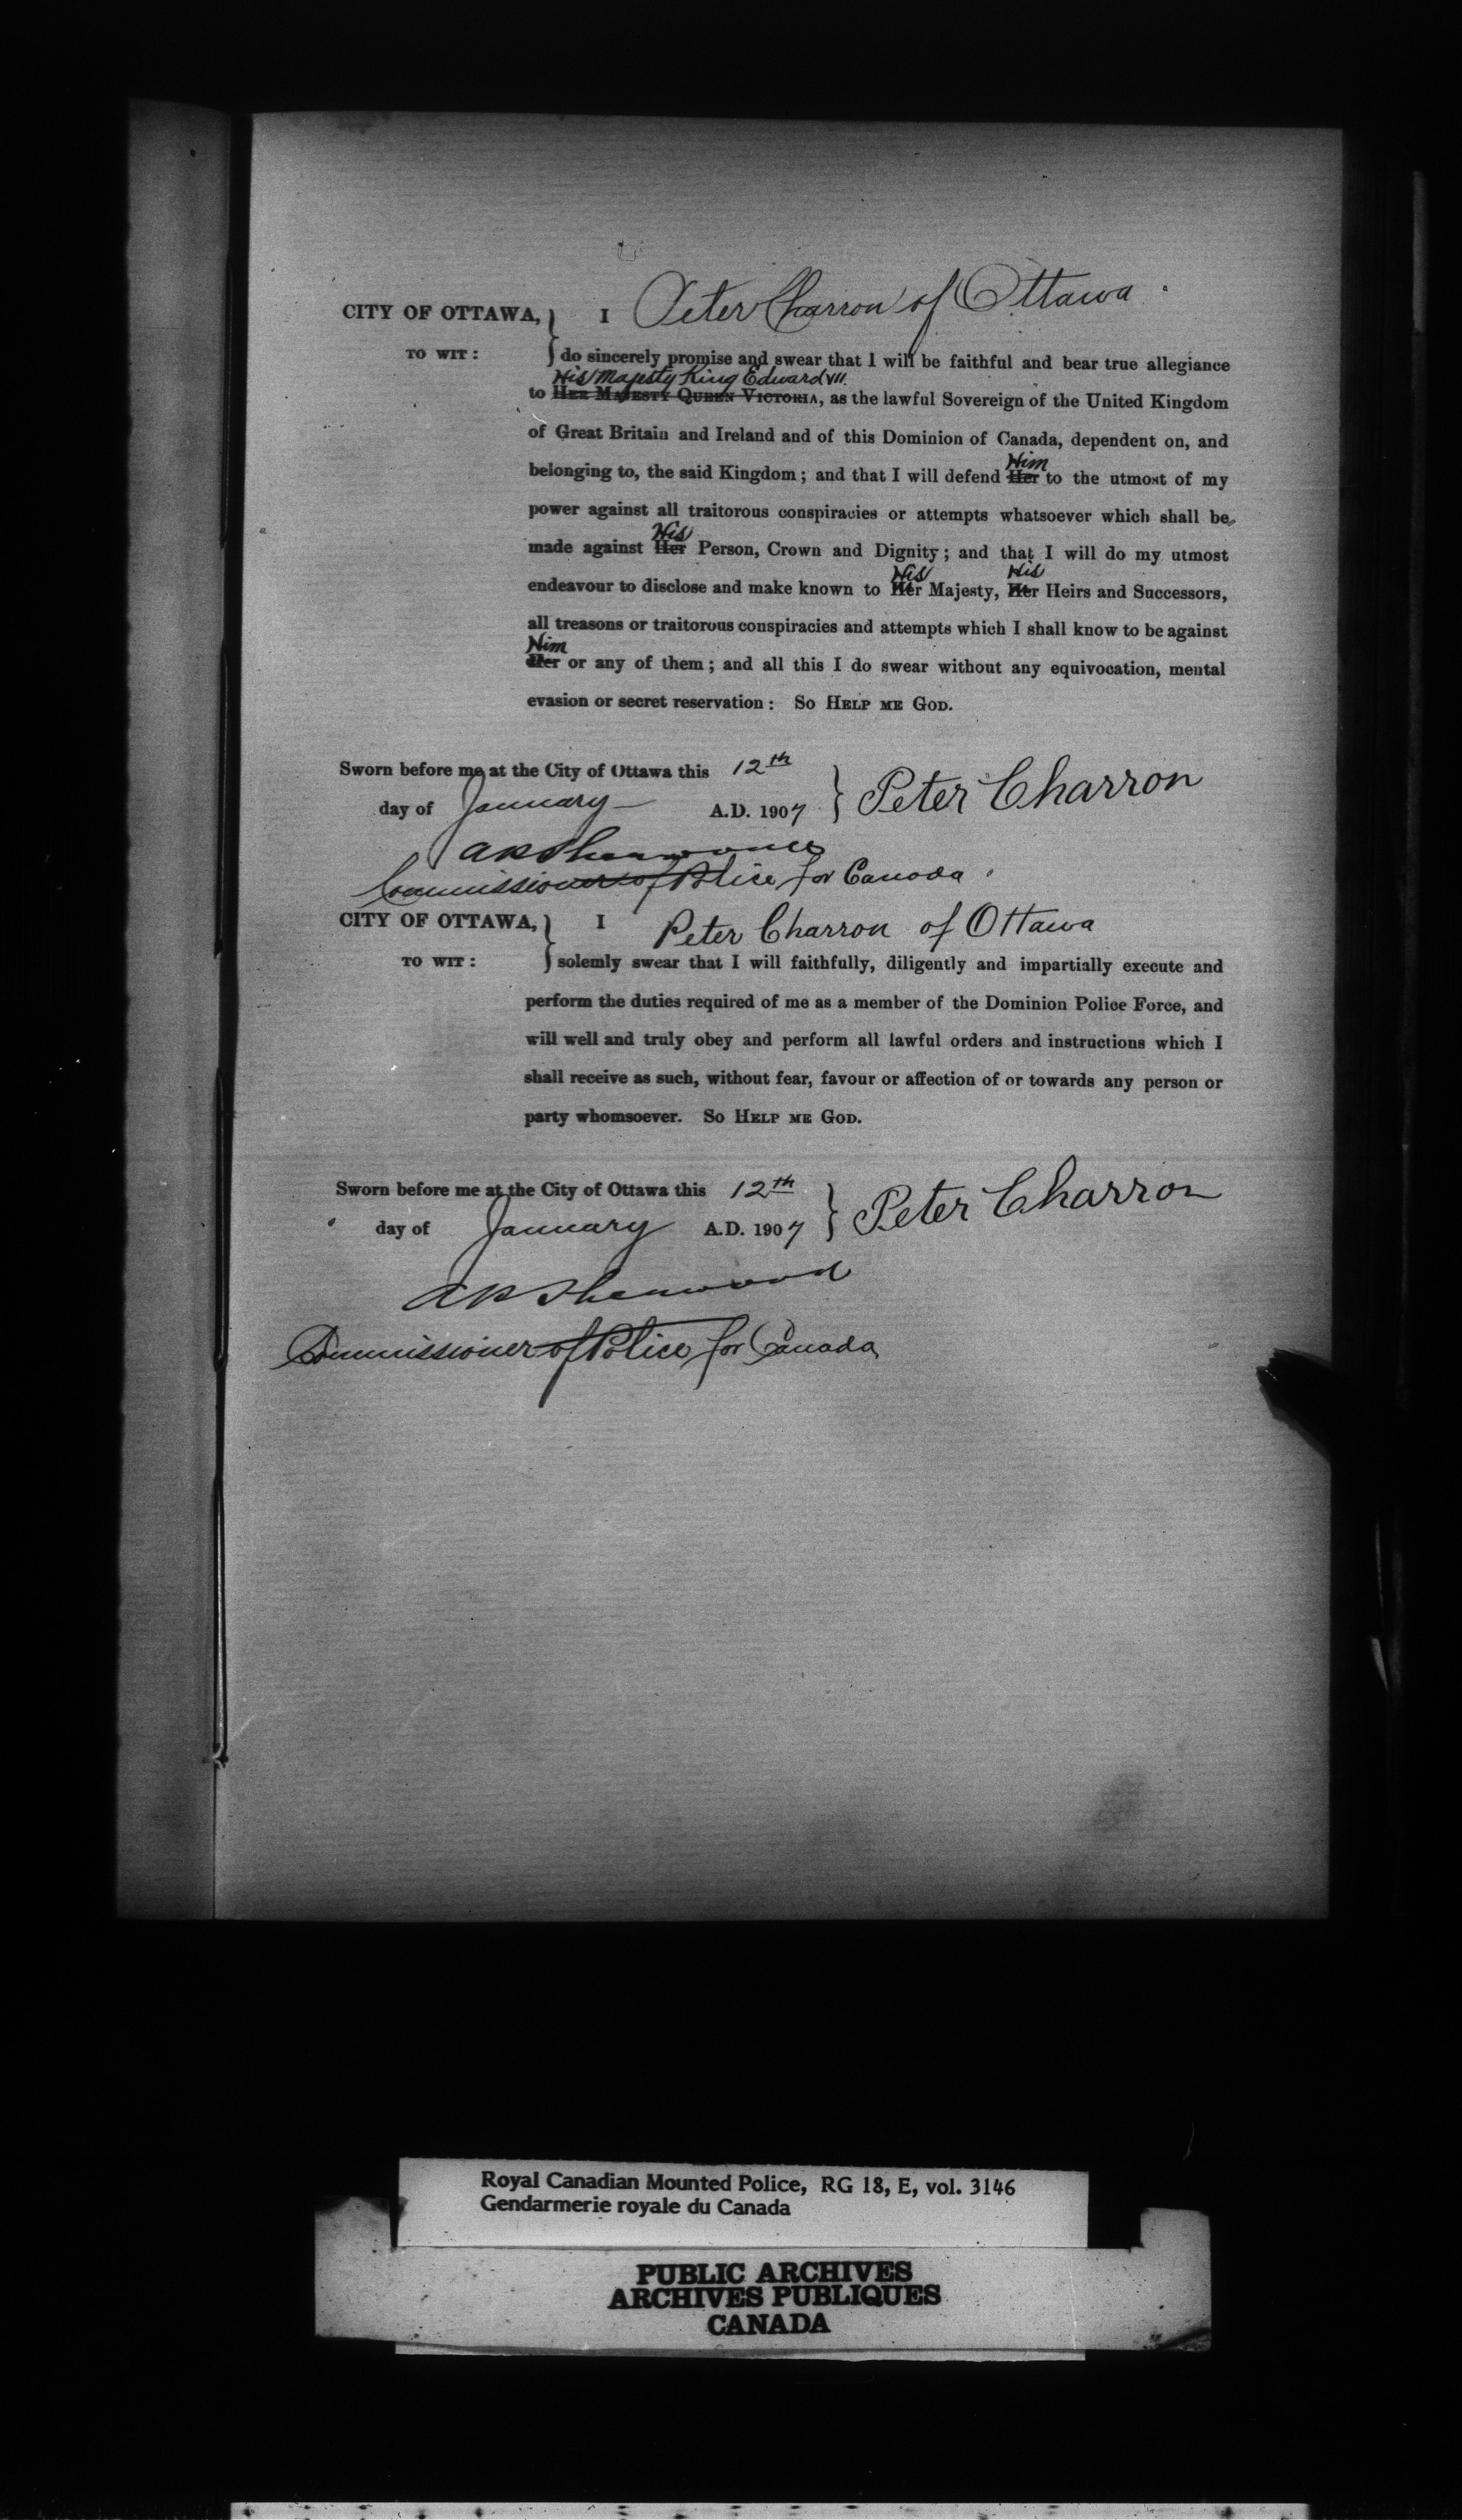 CITY OF OTTAWA, } I Peter Charron of Ottawa
TO WIT: } do sincerely promise and swear that I will be faithful and bear true allegiance
His Majesty King Edward VII.
to HER MAJESTY QUEEN VICTORIA, as the lawful Sovereign of the United Kingdom
of Great Britain and Ireland and of this Dominion of Canada, dependent on, and
Him
belonging to, the said Kingdom; and that I will defend Her to the utmost of my
power against all traitorous conspiracies or attempts whatsoever which shall be
His
made against Her Person, Crown and Dignity; and that I will do my utmost
His His
endeavour to disclose and make known to Her Majesty, Her Heirs and Successors,
all treasons or traitorous conspiracies and attempts which I shall know to be against
Him
Her or any of them; and all this I do swear without any equivocation, mental
evasion or secret reservation: SO HELP ME GOD.
Sworn before me at the City of Ottawa this 12th
day of January A.D. 1907 } Peter Charron
AP Sherwood
Commissioner of Police for Canada
CITY OF OTTAWA, } I Peter Charron of Ottawa
TO WIT: } solemly swear that I will faithfully, diligently and impartially execute and
perform the duties required of me as a member of the Dominion Police Force, and
will well and truly obey and perform all lawful orders and instructions which I
shall receive as such, without fear, favour or affection of or towards any person or
party whomsoever. SO HELP ME GOD.
Sworn before me at the City of Ottawa this 12th
day of January A.D. 1907 } Peter Charron
AP Sherwood
Commissioner of Police for Canada
Royal Canadian Mounted Police, RG 18, E, vol. 3146
Gendarmerie royale du Canada
PUBLIC ARCHIVES
ARCHIVES PUBLIQUES
CANADA